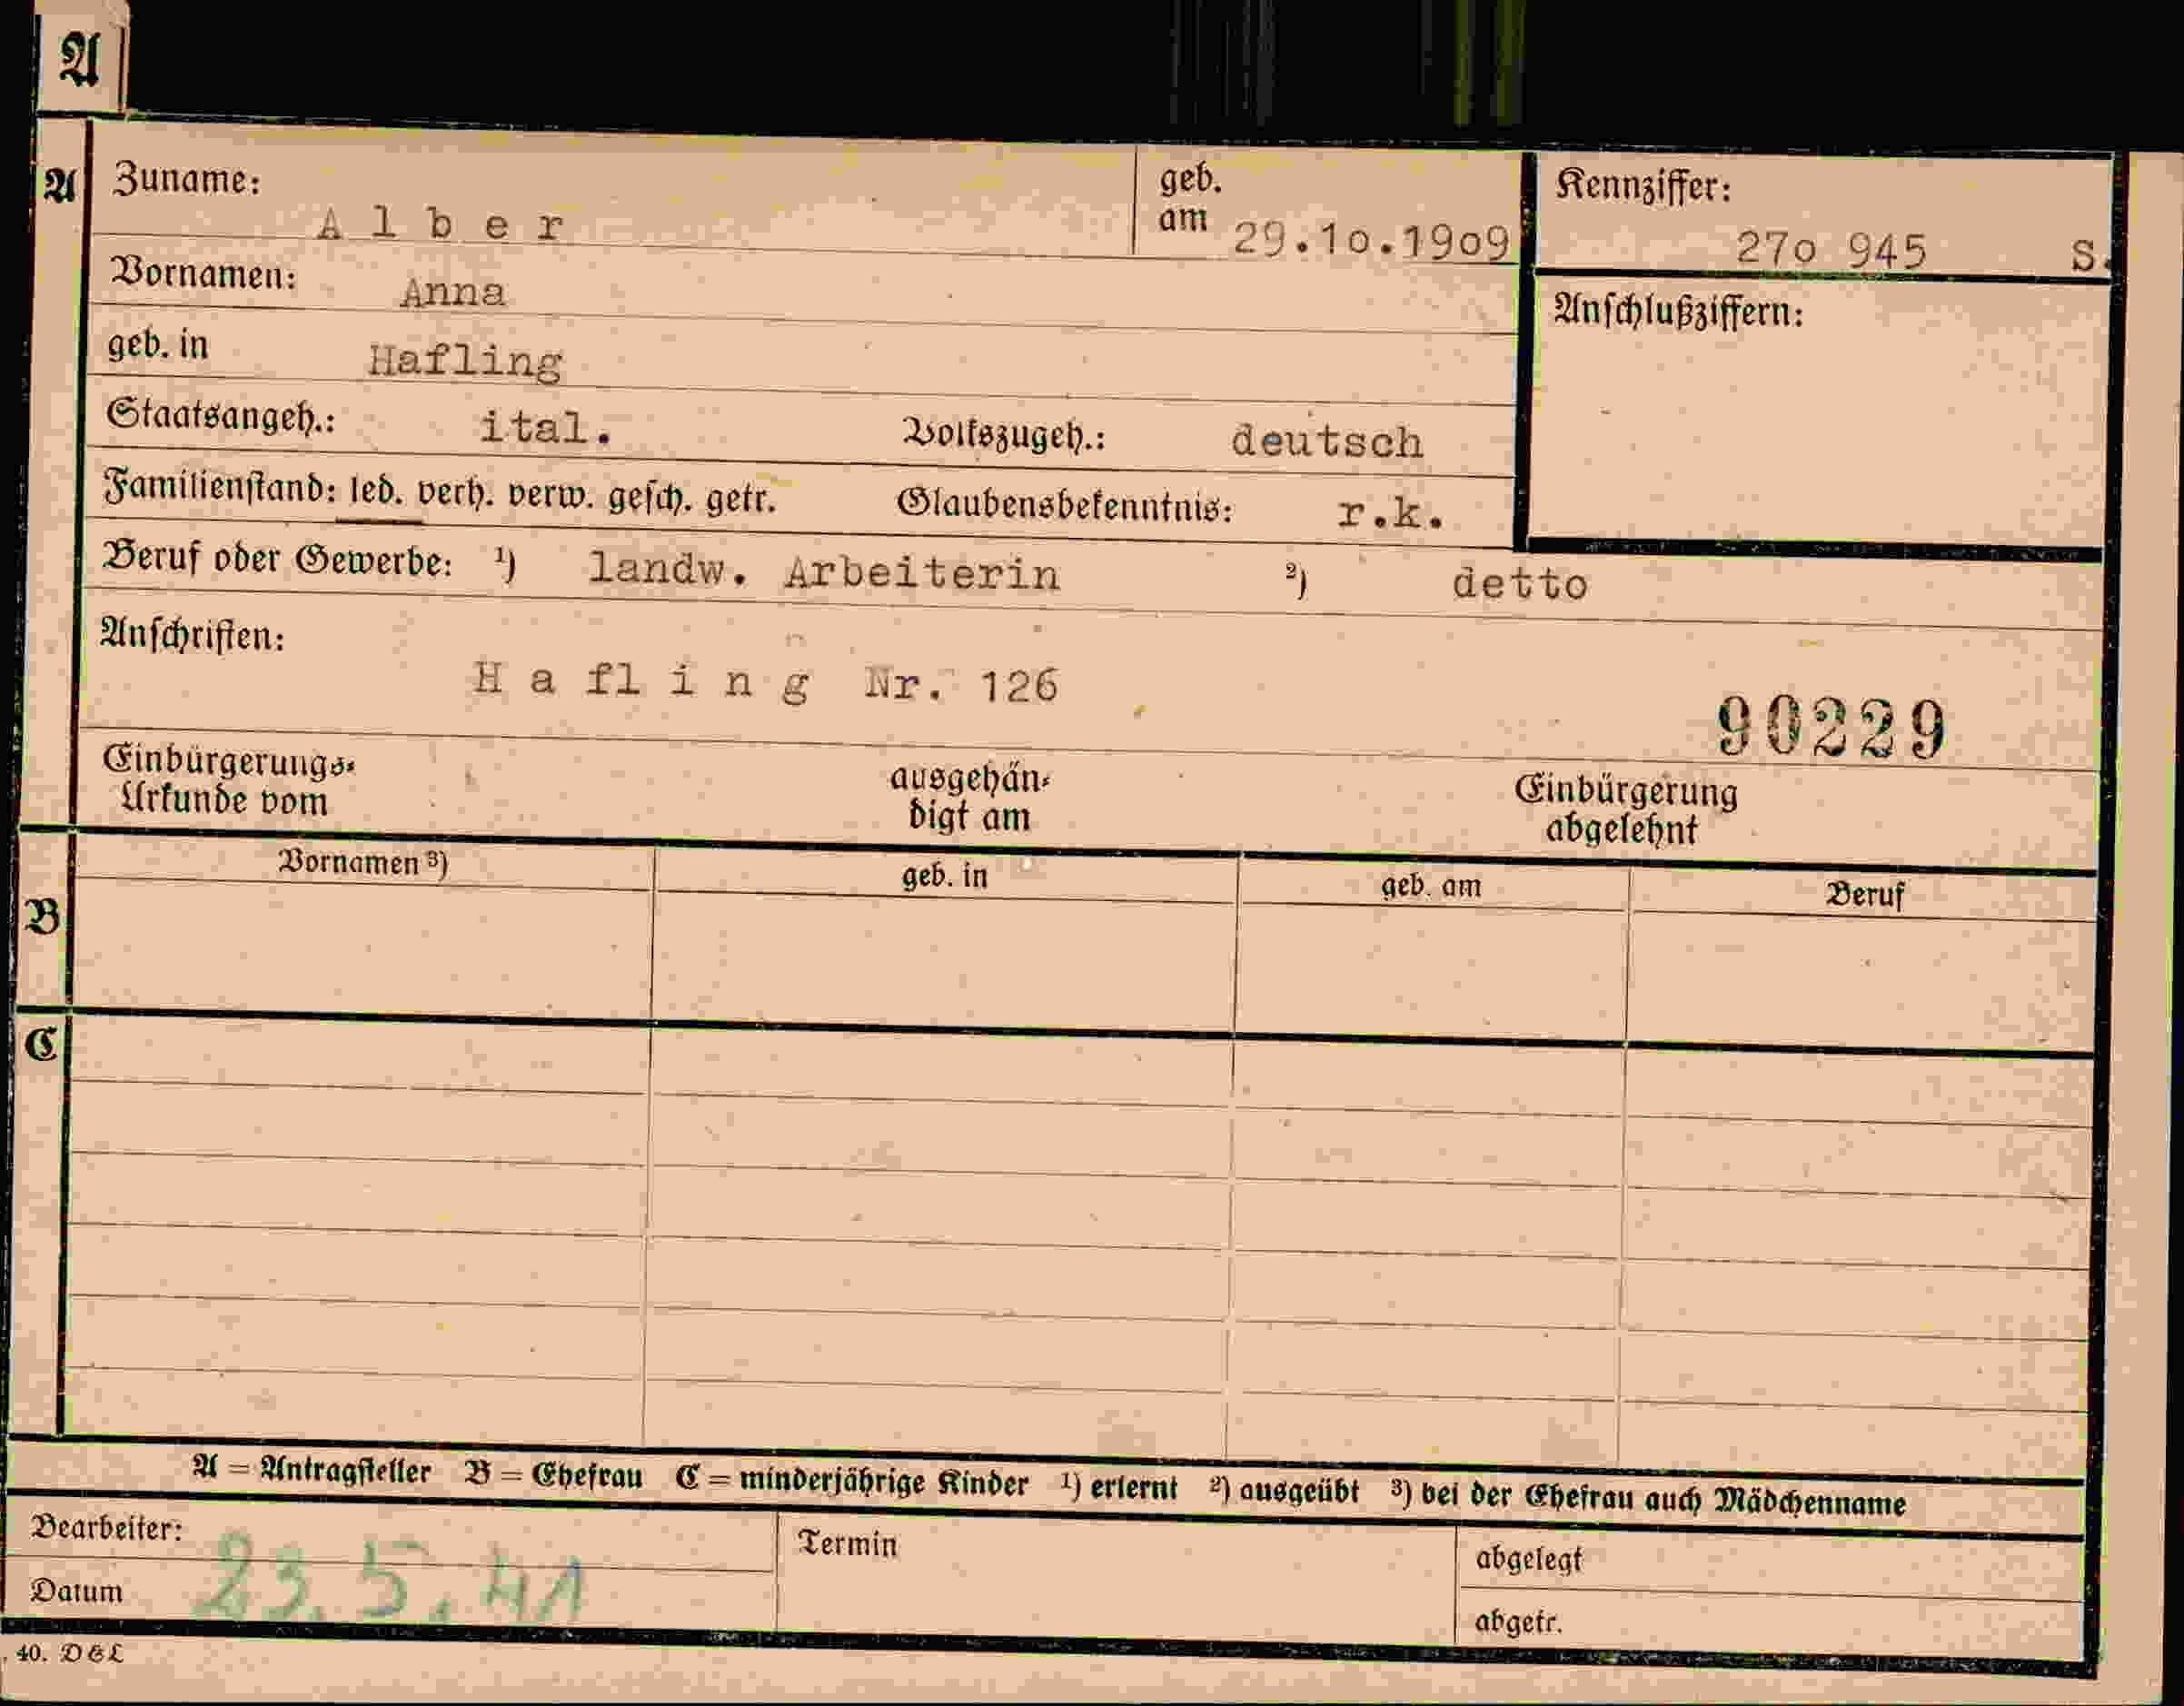 A
A Zuname: A l b e r geb. am 29.1o.19o9 Kennziffer: 27o 945 S.
Vornamen: Anna Anschlußziffern:
geb. in Hafling
Staatsangeh.: ital. Volkszugeh.: deutsch
Familienstand: led. verh. verw. gesch. getr. Glaubensbekenntnis: r.k.
Beruf oder Gewerbe: ¹) landw. Arbeiterin ²) detto
Anschriften:
H a fl i n g Nr. 126
90229
Einbürgerungs-
Urkunde vom
ausgehän-
digt am
Einbürgerung
abgelehnt
B Vornamen ³) geb. in geb. am Beruf
C
A = Antragsteller B = Ehefrau C = minderjährige Kinder ¹) erlernt ²) ausgeübt ³) bei der Ehefrau auch Mädchenname
Bearbeiter: Termin abgelegt
Datum 23.5.41 abgetr.
. 40. DGL